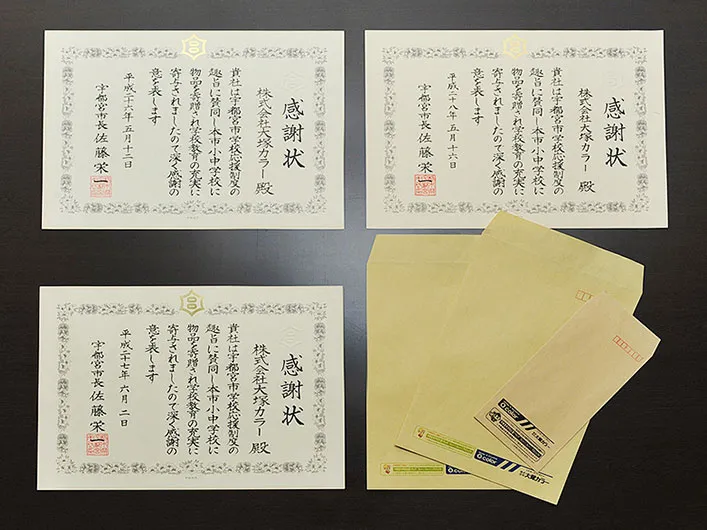 感謝状
株式会社大塚カラー 殿
貴社は宇都宮市学校応援制度の
趣旨に賛同し本市小中学校に
物品を寄贈され学校教育の充実に
寄与されましたので深く感謝の
意を表します
平成二十六年 五月十二日
宇都宮市長 佐藤栄一
感謝状
株式会社大塚カラー 殿
貴社は宇都宮市学校応援制度の
趣旨に賛同し本市小中学校に
物品を寄贈され学校教育の充実に
寄与されましたので深く感謝の
意を表します
平成二十八年 五月十六日
宇都宮市長 佐藤栄一
感謝状
株式会社大塚カラー 殿
貴社は宇都宮市学校応援制度の
趣旨に賛同し本市小中学校に
物品を寄贈され学校教育の充実に
寄与されましたので深く感謝の
意を表します
平成二十七年 六月 二日
宇都宮市長 佐藤栄一
color
大塚カラー
color